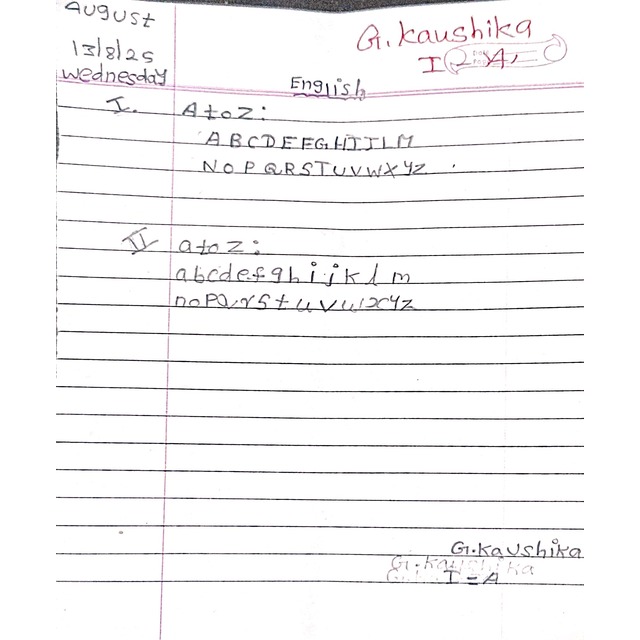 August
13/8/25
Wednesday
G. Kaushika
I - A
English
I. A to Z:
A B C D E F F G H I J L M
N O P Q R S T U V W X Y Z
II a to z:
a b c d e f g h i j k l m
n o P Q r s t u v w x y z
G. Kaushika
G. Kaushika
I = A